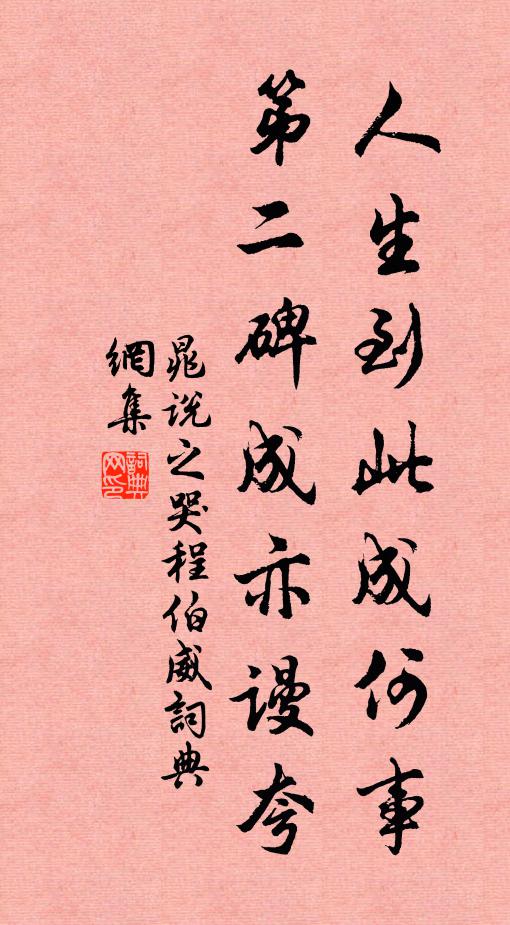 人生到此成何事
第二碑成亦謾夸
晁说之哭程伯威詞典
網集
詞典网印